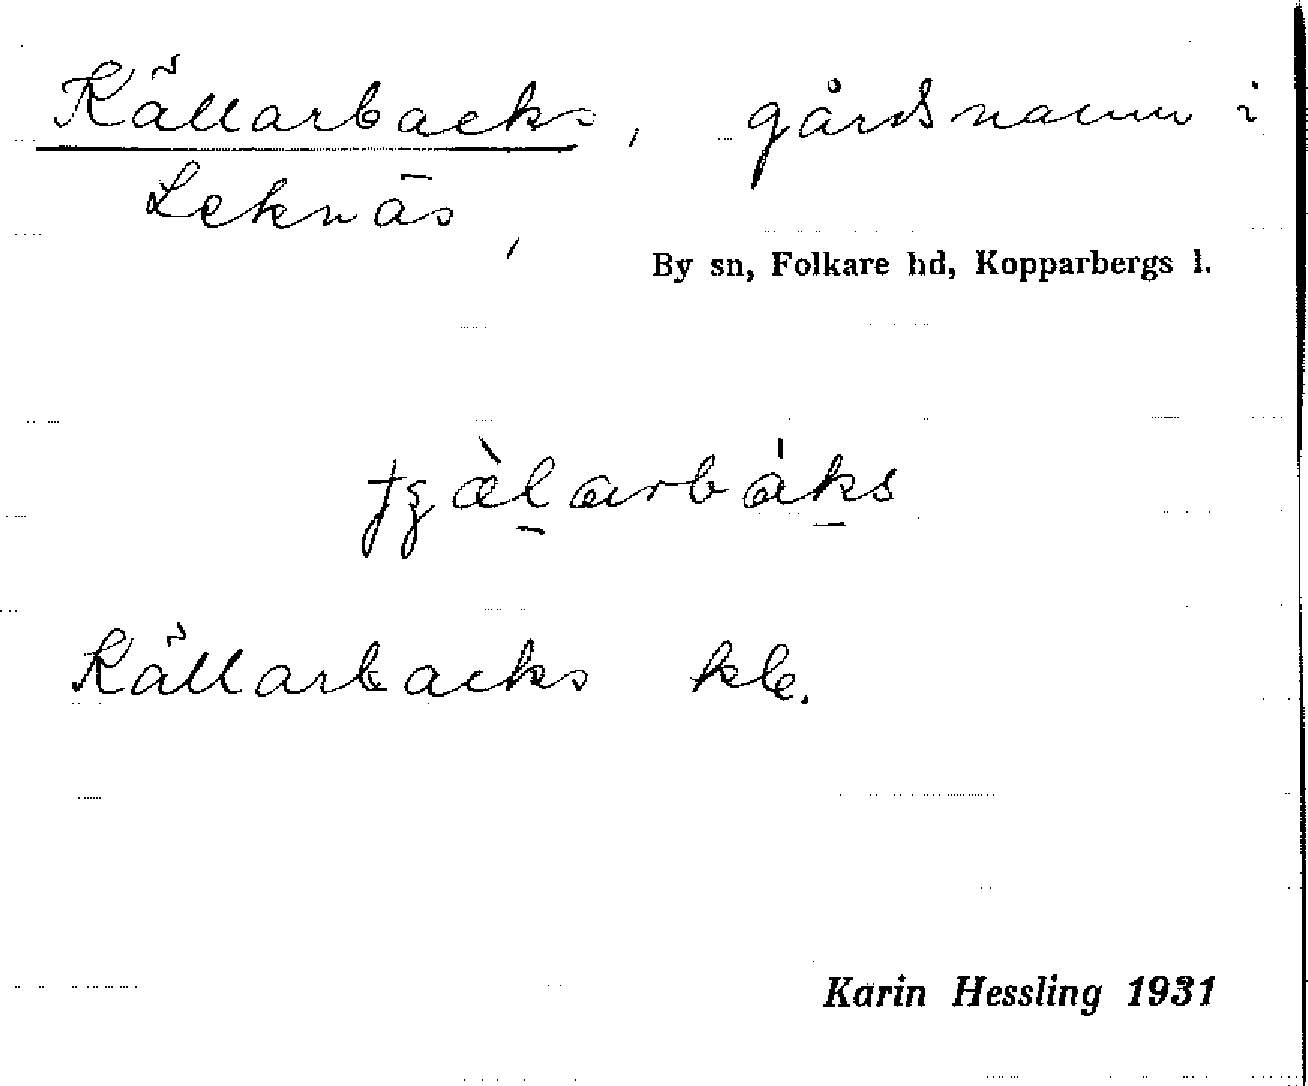 Källarbacks, gårdsnamn i
Leknäs,
By sn, Folkare hd, Kopparbergs l.
Källarbacks klb.
Karin Hessling 1931